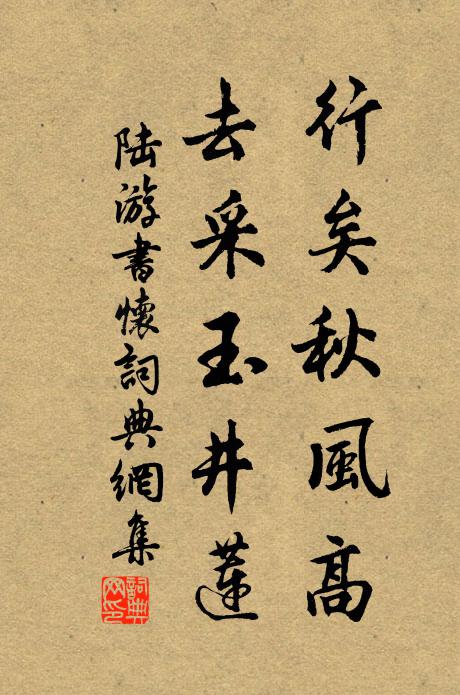 行矣秋風高
去采玉井蓮
陸游書懷詞典網集
詞典網印